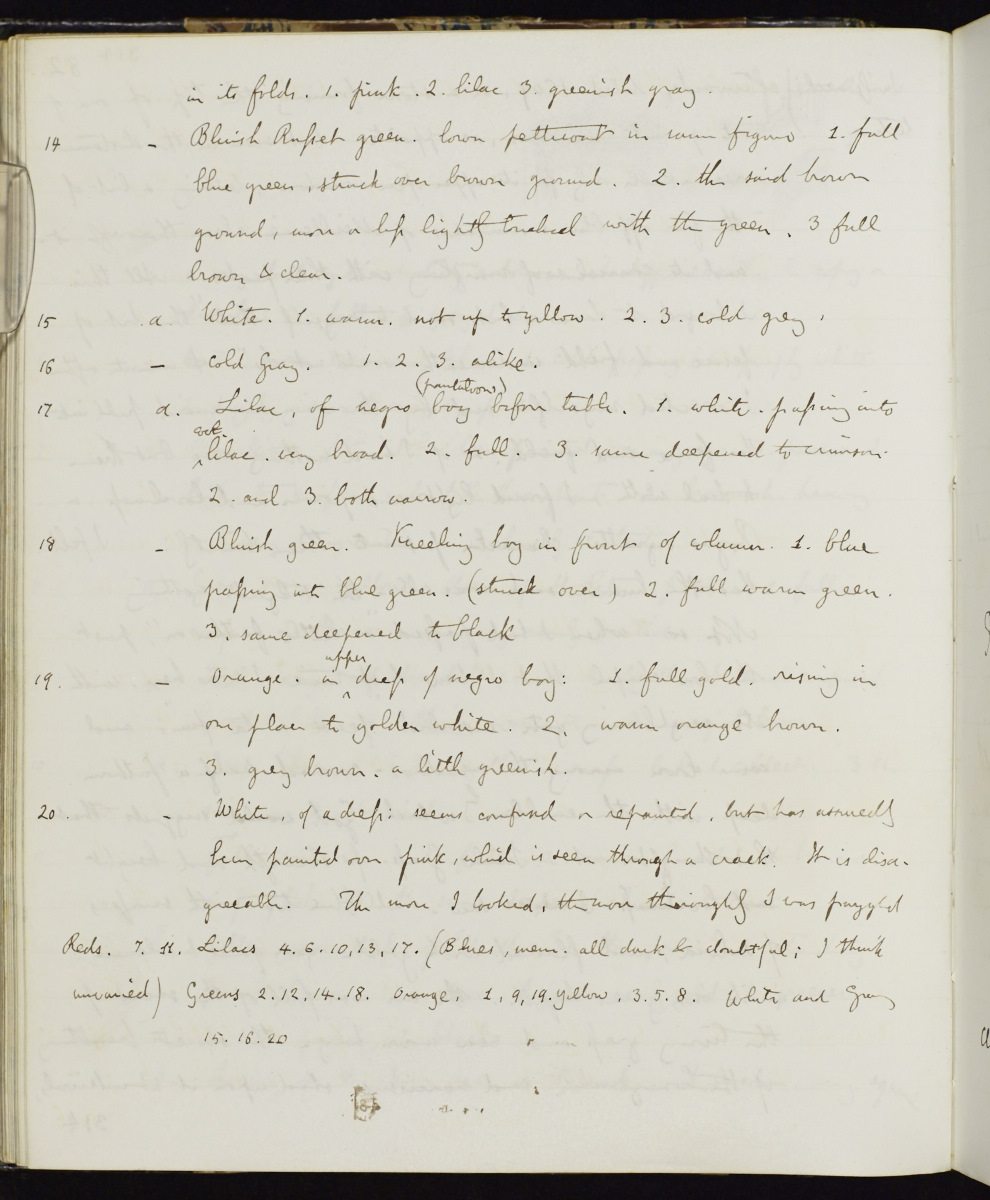 in its folds. 1. pink. 2. lilac 3. greenish gray.
14 - Bluish Russet green. lower petticoat in same figure 1. full
blue green, struck over brown ground. 2. the said brown
ground, more or less lightly touched with the green. 3 full
brown & clear.
15 a. White. 1. warm. not up to yellow. 2. 3. cold grey.
16 - cold Gray. 1. 2. 3. alike.
(pantaloons)
17 a. Lilac, of negro boy before table. 1. white. passing into
lilac. very broad. 2. full. 3. same deepened to crimson.
2. and 3. both narrow.
18 - Bluish green. Kneeling boy in front of column. 1. blue
passing into blue green. (struck over) 2. full warm green.
3. same deepened to black
upper
19. - Orange. in ^ dress of negro boy: 1. full gold. rising in
one place to golden white. 2. warm orange brown.
3. grey brown. a little greenish.
20. - White, of a dress: seems confused or repainted, but has assuredly
been painted over pink, which is seen through a crack. It is disa-
greeable. The more I looked, the more thoroughly I was puzzled
Reds. 7. 11. Lilacs 4. 6. 10, 13, 17. (Blues, mem. all dark & doubtful; I think
unvaried) Greens 2. 12. 14. 18. Orange. 1, 9, 19. Yellow. 3. 5. 8. White and Gray
15. 16. 20